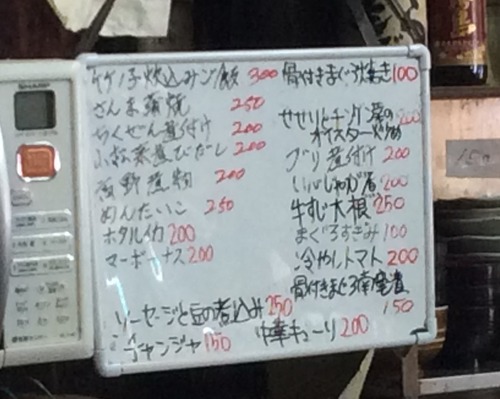 SHARP
竹ノ子炊込みゴ飯 300
さんま蒲焼 250
ちくぜん煮付け 200
小松菜煮びたし 200
高野煮物 200
めんたいこ 250
ホタルイカ 200
マーボーナス 200
ソーセージと豆の煮込み 250
チャンジャ 150
骨付きまぐろ焼き 100
せせりとチンゲン菜の
オイスター炒め 200
ブリ煮付け 200
じゃが 200
牛すじ大根 250
まぐろすきみ 100
冷やしトマト 200
骨付きまぐろ南蛮漬
150
中華キューリ 200